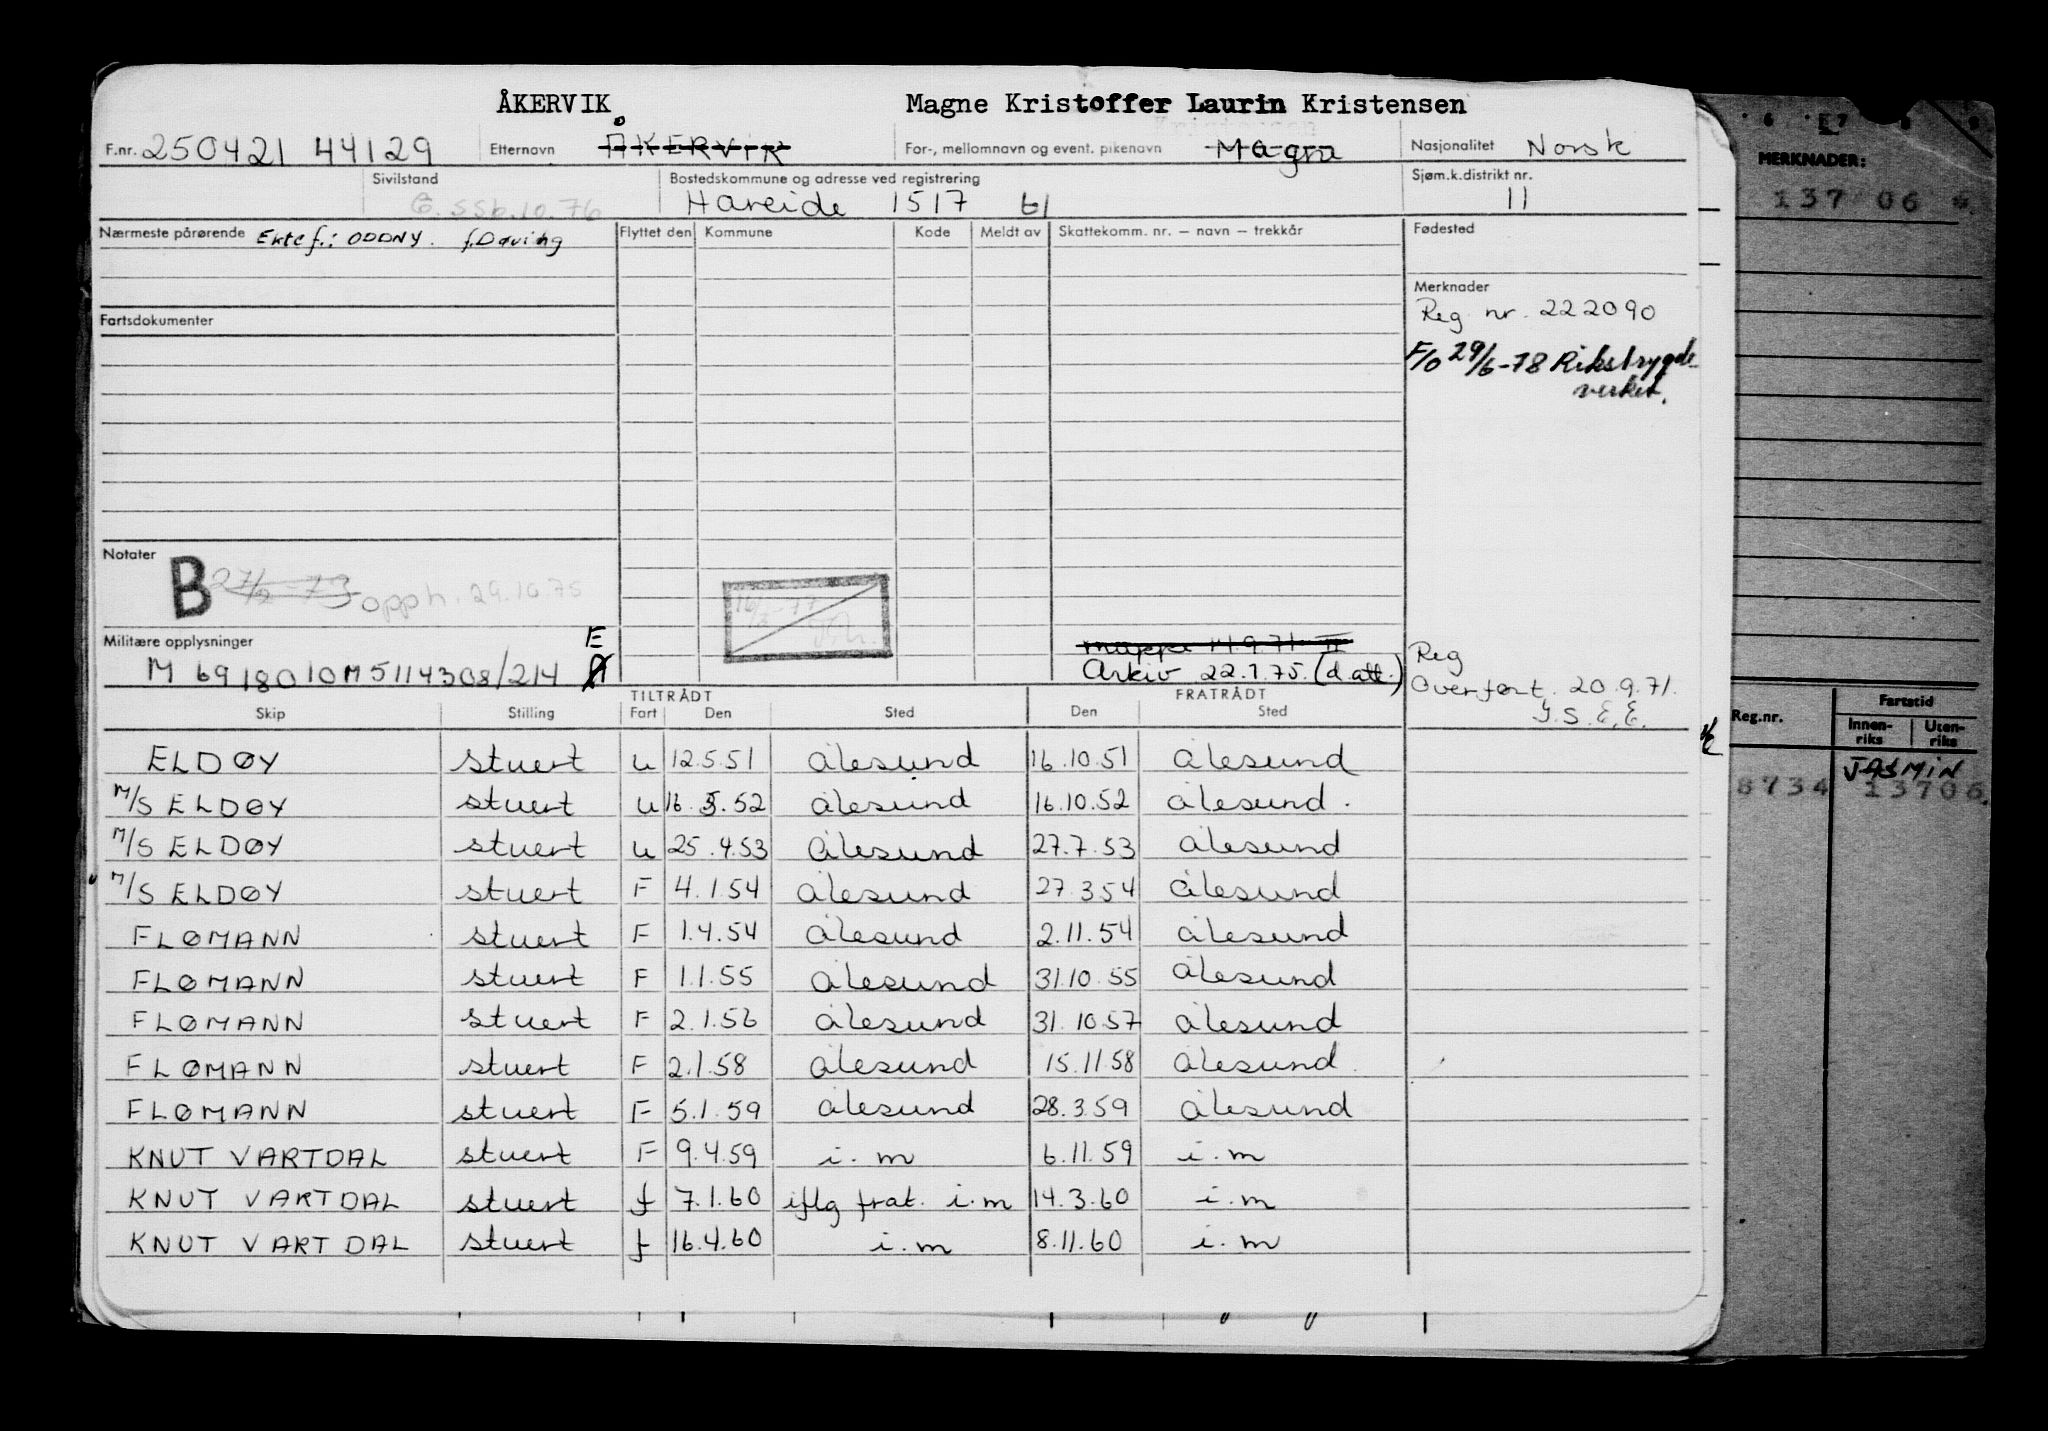 ÅKERVIK Magne Kristoffer Laurin Kristensen
F.nr. 250421 44129 Etternavn ÅKERVIK For-, mellomnavn og event. pikenavn Magna Nasjonalitet Norsk
Sivilstand G. SSb.10.76 Bostedskommune og adresse ved registrering Hareide 1517 61 Sjøm.k.distrikt nr. 11
Nærmeste pårørende Ektef.: ODDNY. f. Flyttet den Kommune Kode Meldt av Skattekomm. nr. — navn — trekkår Fødested
Merknader
Reg nr. 222090
Fartsdokumenter
F/O 29/6-78 Rikstrygde-
verket.
Notater
B 27/2-73 opph. 29.10.75
16/2-77
Militære opplysninger E
M 69 18010 M5114308/214 A
mappe 14.9.71 II
Arkiv 22.7.75. (d.att.)
Reg
Overført. 20.9.71.
TILTRÅDT FRATRÅDT
Skip Stilling Fart Den Sted Den Sted
ELDØY stuert u 12.5.51 Ålesund 16.10.51 Ålesund
M/S ELDØY stuert u 16.3.52 Ålesund 16.10.52 Ålesund.
M/S ELDØY stuert u 25.4.53 Ålesund 27.7.53 Ålesund
M/S ELDØY stuert F 4.1.54 Ålesund 27.3.54 Ålesund
FLØMANN stuert F 1.4.54 Ålesund 2.11.54 Ålesund
FLØMANN stuert F 1.1.55 Ålesund 31.10.55 Ålesund
FLØMANN stuert F 2.1.56 Ålesund 31.10.57 Ålesund
FLØMANN stuert F 2.1.58 Ålesund 15.11.58 Ålesund
FLØMANN stuert F 5.1.59 Ålesund 28.3.59 Ålesund
KNUT VARTDAL stuert F 9.4.59 i.m 6.11.59 i.m
KNUT VARTDAL stuert f 7.1.60 iflg frat. i.m 14.3.60 i.m
KNUT VARTDAL stuert f 16.4.60 i.m 8.11.60 i.m
6 7 8 9
MERKNADER:
137 06
Reg.nr. Fartstid
Innen-
riks Uten-
riks
JASMIN
8734 13706.